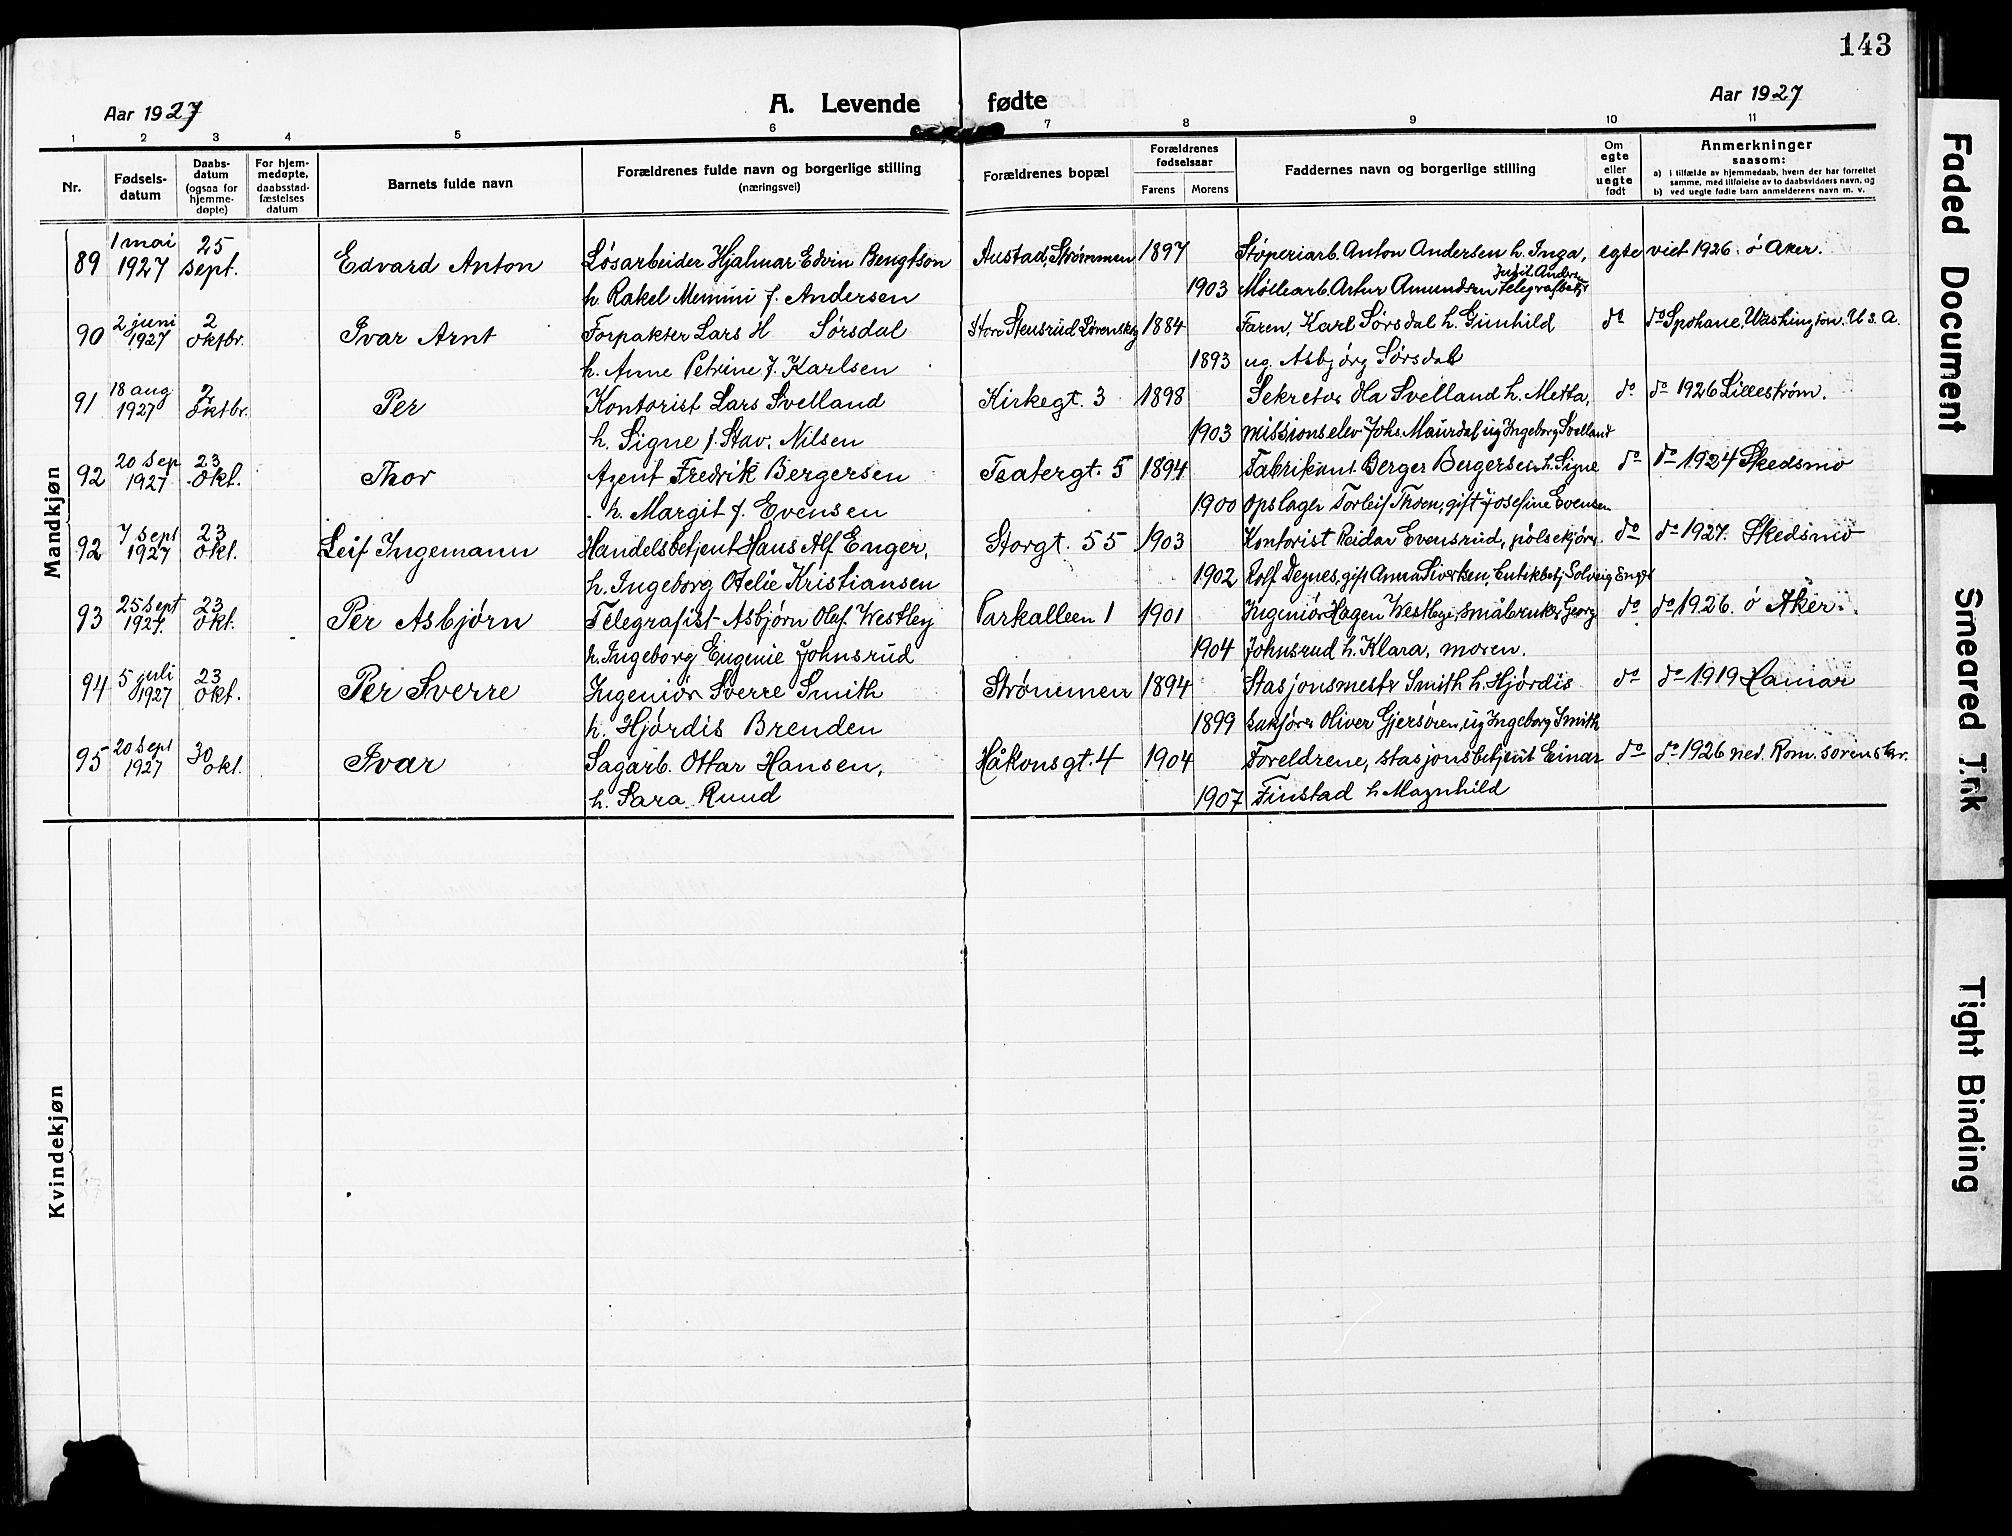 143
Aar 1927
A. Levende fødte
Aar 1927
1 2 3 4 5 6 7 8 9 10 11
Nr.
Fødsels-
datum
Daabs-
datum
(ogsaa for
hjemme-
døpte)
For hjem-
medøpte,
daabsstad-
fæstelses
datum
Barnets fulde navn
Forældrenes fulde navn og borgerlige stilling
(næringsvei)
Forældrenes bopæl
Forældrenes
fødselsaar
Farens Morens
Faddernes navn og borgerlige stilling
Om
egte
eller
uegte
født
Anmerkninger
saasom:
a) i tilfælde av hjemmedaab, hvem der har forrettet
samme, med tilføielse av to daabsvidners navn, og
b) ved uegte fødte barn anmelderens navn m. v.
Mandkjøn
89 1 mai 1927 25 sept. Edvard Anton Løsarbeider Hjalmar Edvin Bengtson Austad, Strømmen 1897 Støperiarb. Anton Andersen h. Inga, egte viet 1926 ö Aker.
h. Rakel Memini f. Andersen 1903 Møllearb. Artur Amundsen
90 2 juni 1927 2 oktbr. Ivar Arnt Forpakter Lars H Sørsdal Store Stensrud Lørenskog 1884 Faren, Karl Sørsdal h. Gunhild do do Spokane, Washington. U.S.A.
h. Anne Petrine f. Karlsen 1893 ug. Asbjørg Sørsdal
91 18 aug 1927 2 oktbr. Per Kontorist Lars Svelland Kirkegt. 3 1898 Sekretær Ola Svelland h. Metta, do do 1926 Lillestrøm.
h. Signe f. Stav. Nilsen 1903 missionselev Johs. Maurdal ug Ingeborg Svelland
92 20 Sep 1927 23 okt. Thor Agent Fredrik Bergersen Teatergt. 5 1894 Fabrikant Berger Bergersen h. Signe do do 1924 Skedsmo
h. Margit f. Evensen 1900 opslager Torleif Thoen, gift Josefine Evensen
92 7 sept 1927 23 okt. Leif Ingemann Handelsbetjent Hans Alf Enger, Storgt. 55 1903 Kontorist Reidar Evensrud, pølsekjører do do 1927. Skedsmo
h. Ingeborg Otelie Kristiansen 1902 Rolf Degnes, gift Anna Sivertsen, butikbetj Solveig Enger
93 25 sept 1927. 23 okt. Per Asbjørn Telegrafist Asbjørn Olaf. Westley Parkalleen 1 1901 Ingeniør Hagen Westbye, småbruker Georg do do 1926. ö Aker.
h. Ingeborg Eugenie Johnsrud 1904 Johnsrud h. Klara, moren.
94 5 juli 1927 23 okt. Per Sverre Ingeniør Sverre Smith Strømmen 1894 Stasjonsmester Smith h. Hjørdis do do 1919 Hamar
h. Hjørdis Brenden 1899 sakfører Oliver Gjersøren, ug Ingeborg Smith
95 20 sept 1927 30 okt. Ivar Sagarb. Ottar Hansen, Håkonsgt. 4 1904 Foreldrene, stasjonsbetjent Einar do do 1926 ned. Rom. sorenskr.
h. Sara Ruud 1907 Finstad h Magnhild
Kvindekjøn
Faded Document
Smeared Ink
Tight Binding